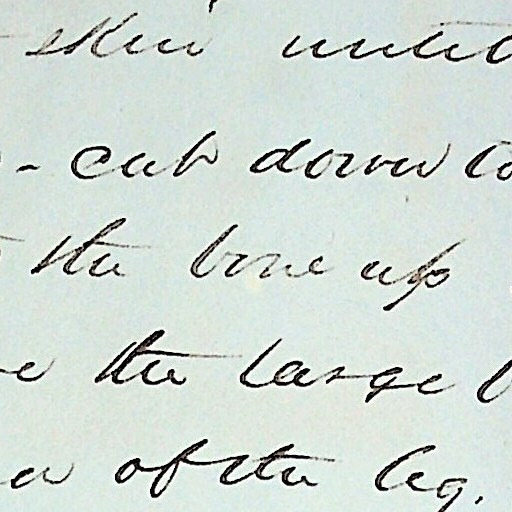 skin until
- cut down to
the bone up
the large
of the leg.